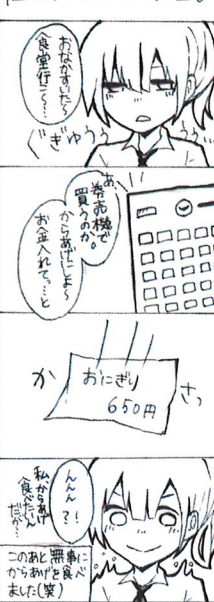 おなかすいた〜
食堂行こ〜…
ぐぎゅうぅぅ…
あ、
券売機で
買うのか。
からあげにしよ〜
お金入れてっ…と
かさっ
おにぎり
650円
んんん?!
私、からあげ
食べたいん
だが…
このあと無事に
からあげを食べ
ました(笑)